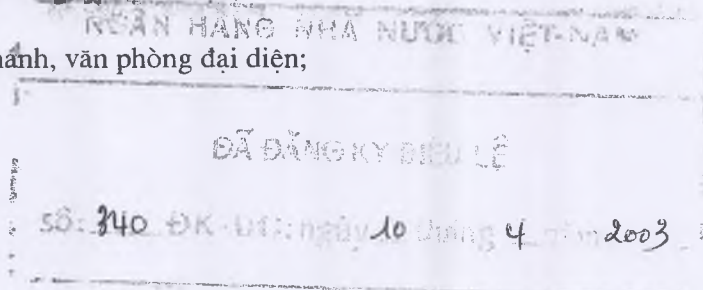 NGÂN HÀNG NHÀ NƯỚC VIỆT-NAM
hánh, văn phòng đại diện;
ĐÃ ĐĂNG KÝ ĐIỀU LỆ
số: 340 ĐK-ĐL; ngày 10 tháng 4 năm 2003